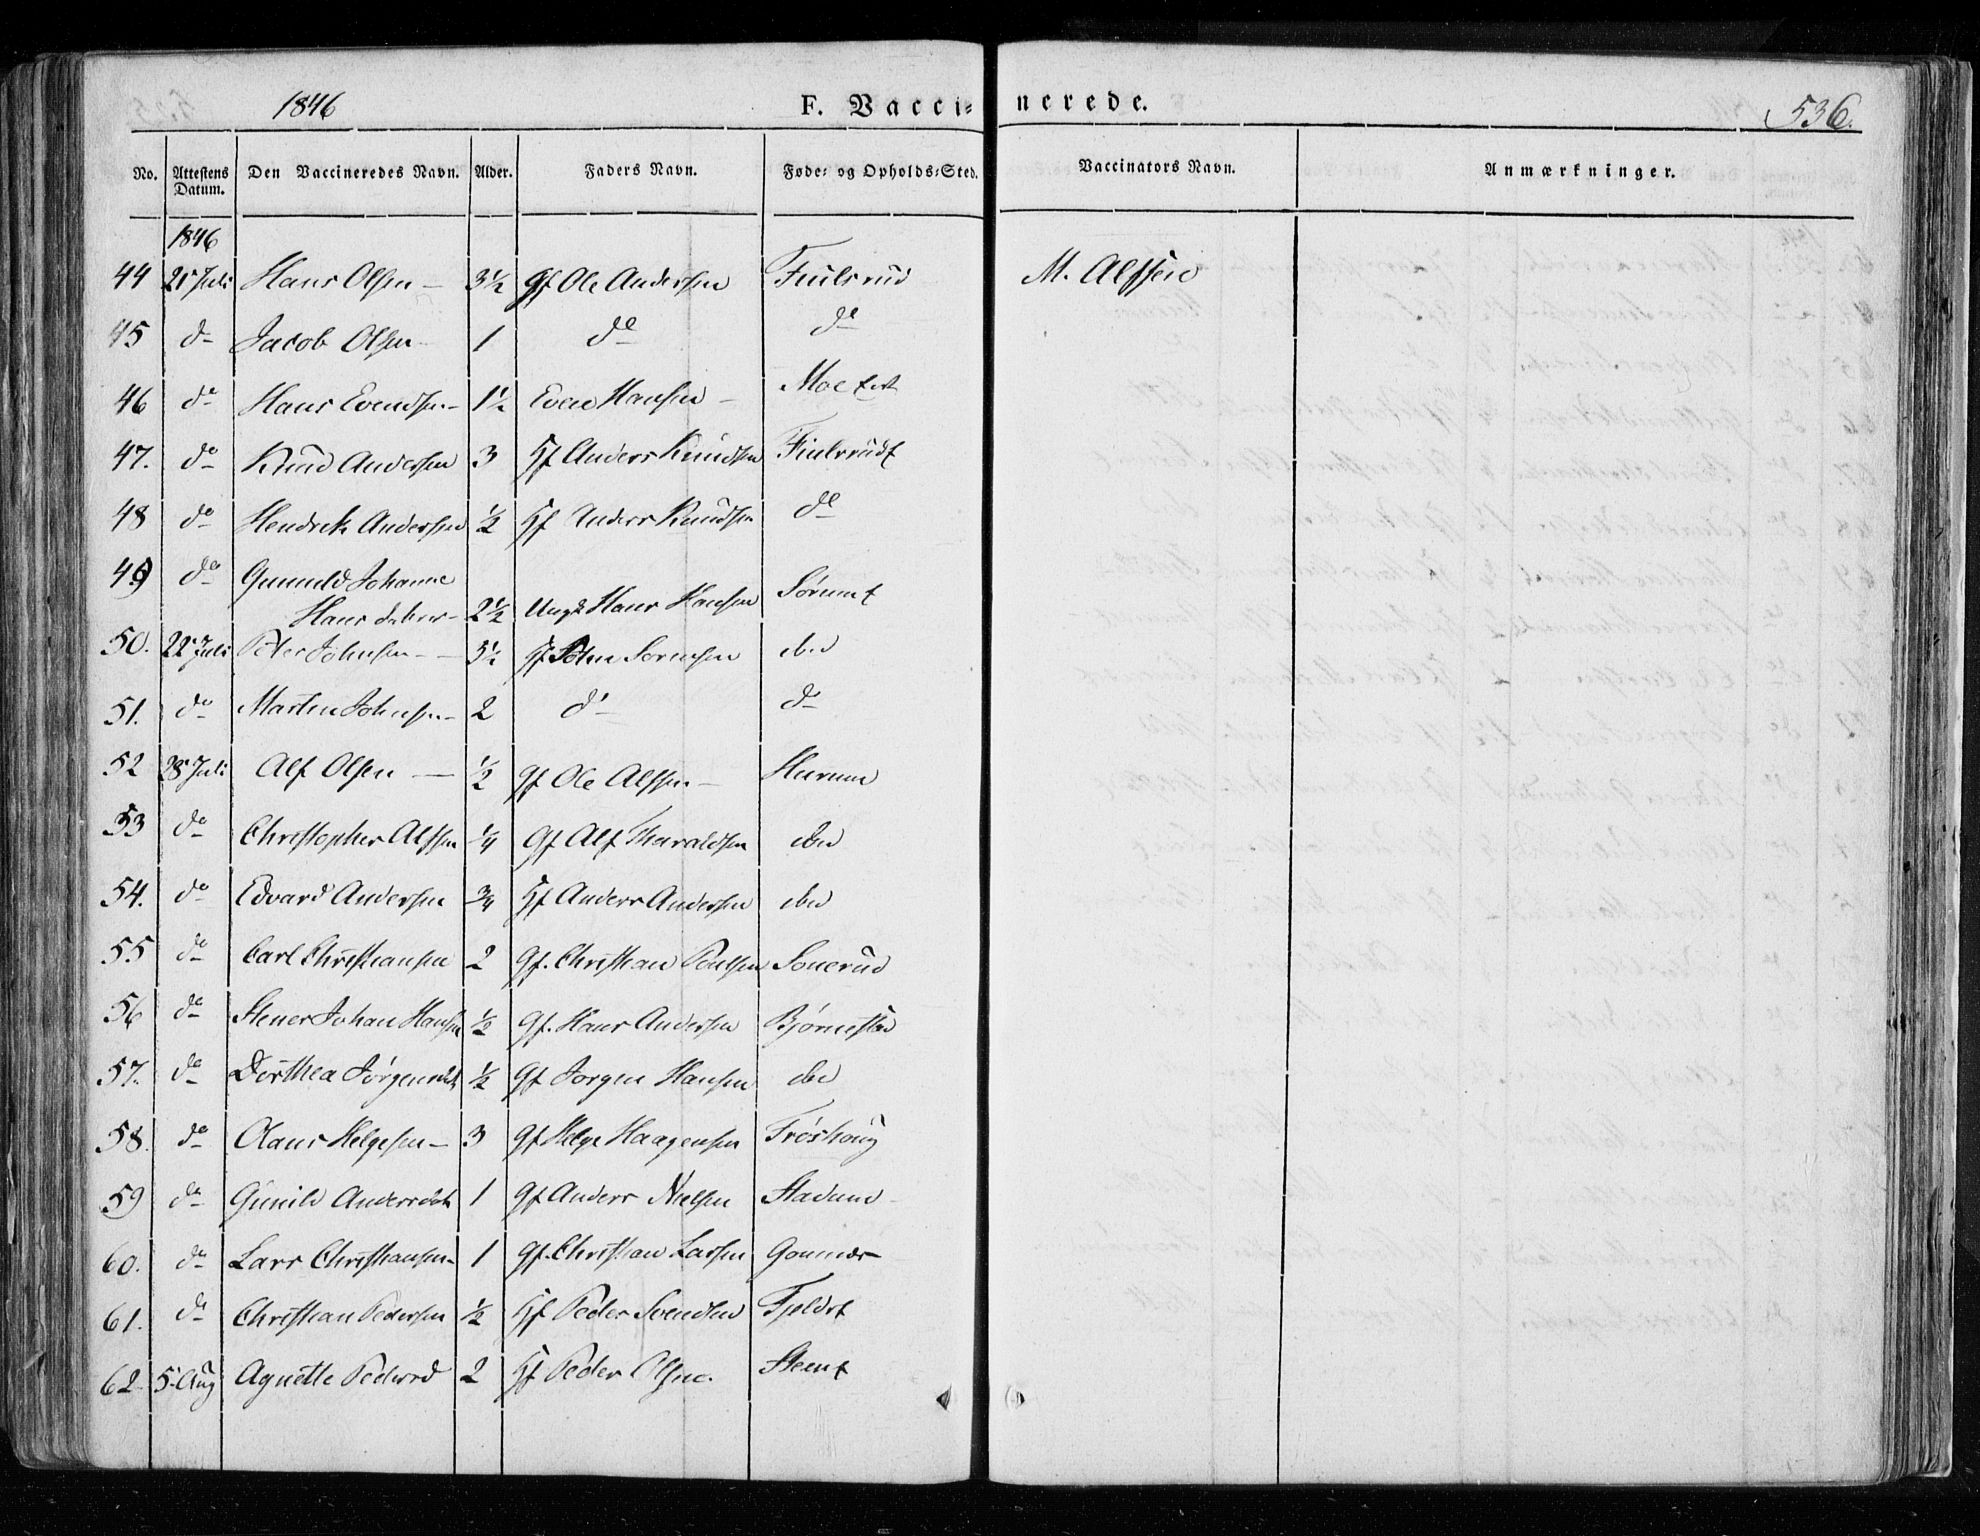 1846 F. Vaccinerede. 536.
No. Attestens Datum. Den Vaccineredes Navn. Alder. Faders Navn. Føde- og Opholds-Sted. Vaccinators Navn. Anmærkninger.
1846
44 21 Juli Hans Olsen 3½ Gf Ole Andersen M. Alfsen
45 do Jacob Olsen 1 do do
46 do Hans Evendsen 1½ Even Hansen
47. do Knud Andersen 3 Hf Anders Knudsen
48 do Hendrik Andersen ½ Hf Anders Knudsen do
49 do Gunnild Johanne
Hansdatter 2½ Ungk Hans Hansen
50. 22 Juli Peter Johnsen 3½ Hf John Sørensen ibid
51. do Martin Johnsen 2 do do
52 28 Juli Alf Olsen ½ Gf Ole Alfsen Hurum
53 do Christopher Alfsen ¼ Gf Alf Tharaldsen ibid
54. do Edvard Andersen ¾ Hf Anders Andersen ibid
55 do Carl Christiansen 2 Gf. Christian Poulsen Sonerud
56 do Stener Johan Hansen ½ Gf. Hans Andersen Bjørnestad
57. do Dorthea Jørgensdt ½ Gf Jørgen Hansen ibid
58. do Olaus Helgesen 3 Gf Helge Haagensen Frøshoug
59 do Gunild Andersdt 1 Gf Anders Nielsen Stadum
60. do Lars Christiansen 1 Gf. Christian Larsen
61. do Christian Pedersen ½ Hf Peder Svendsen
62 5 Aug Agnette Pedersd 2 Hf Peder Olsen